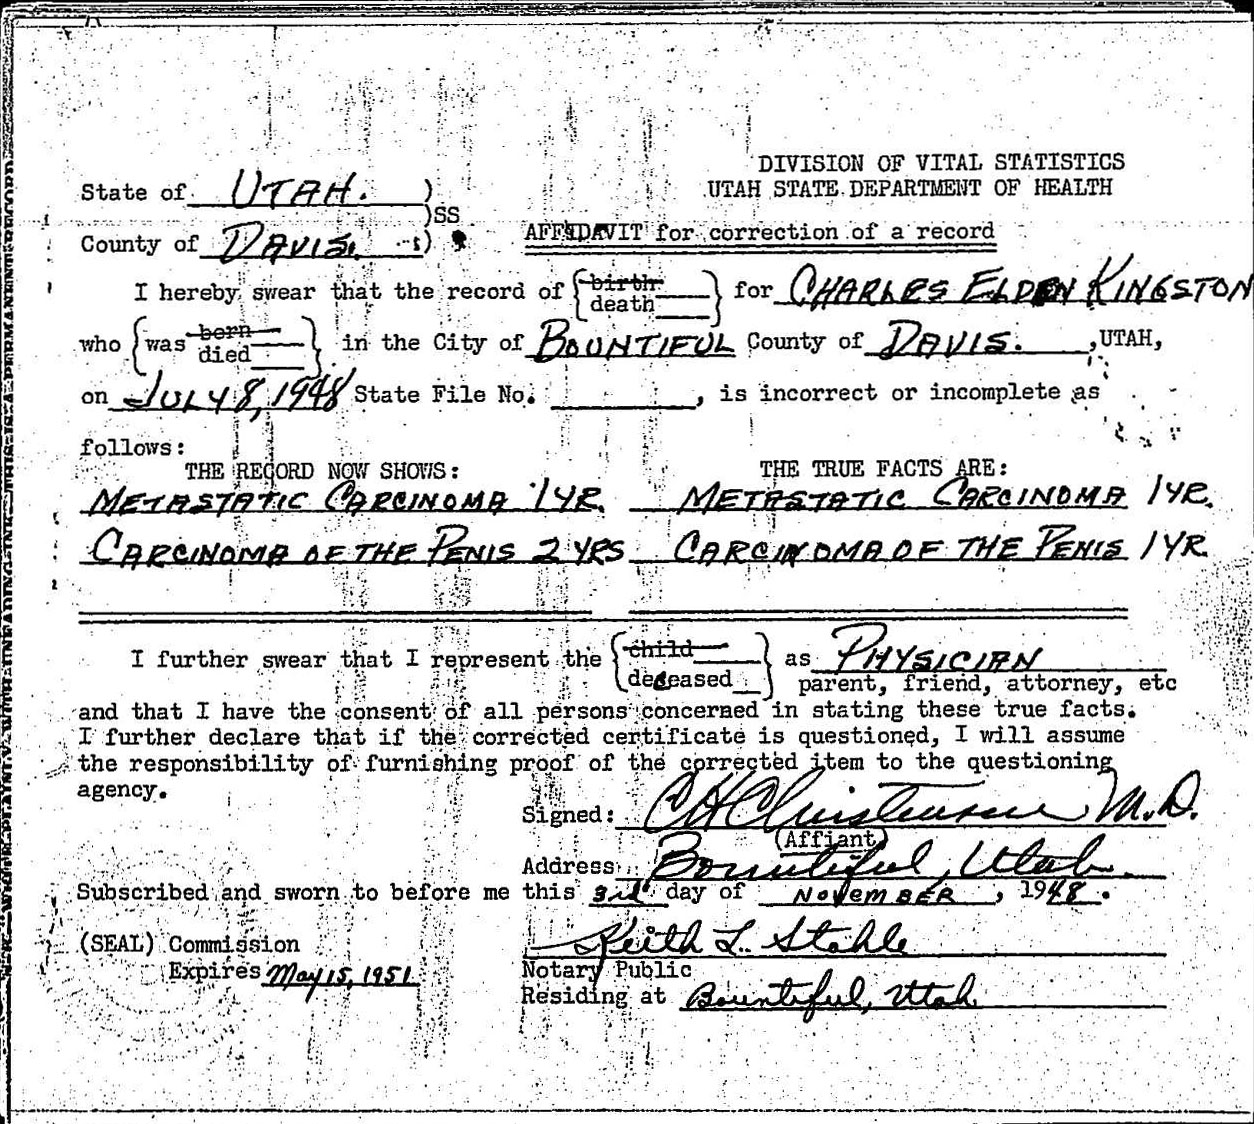 DIVISION OF VITAL STATISTICS
State of UTAH. )
UTAH STATE DEPARTMENT OF HEALTH
)SS
County of DAVIS. )
AFFIDAVIT for correction of a record
I hereby swear that the record of {birth death} for CHARLES ELDEN KINGSTON
who {was born died} in the City of BOUNTIFUL County of DAVIS. ,UTAH,
on JULY 8, 1948 State File No. , is incorrect or incomplete as
follows:
THE RECORD NOW SHOWS: THE TRUE FACTS ARE:
METASTATIC CARCINOMA 1 YR. METASTATIC CARCINOMA 1 YR.
CARCINOMA OF THE PENIS 2 YRS CARCINOMA OF THE PENIS 1 YR.
I further swear that I represent the {child deceased} as PHYSICIAN
parent, friend, attorney, etc
and that I have the consent of all persons concerned in stating these true facts.
I further declare that if the corrected certificate is questioned, I will assume
the responsibility of furnishing proof of the corrected item to the questioning
agency.
Signed: C H Christensen M.D.
(Affiant)
Address Bountiful, Utah.
Subscribed and sworn to before me this 3rd day of NOVEMBER, 1948.
(SEAL) Commission
Keith L. Stahle
Expires May 15, 1951
Notary Public
Residing at Bountiful, Utah